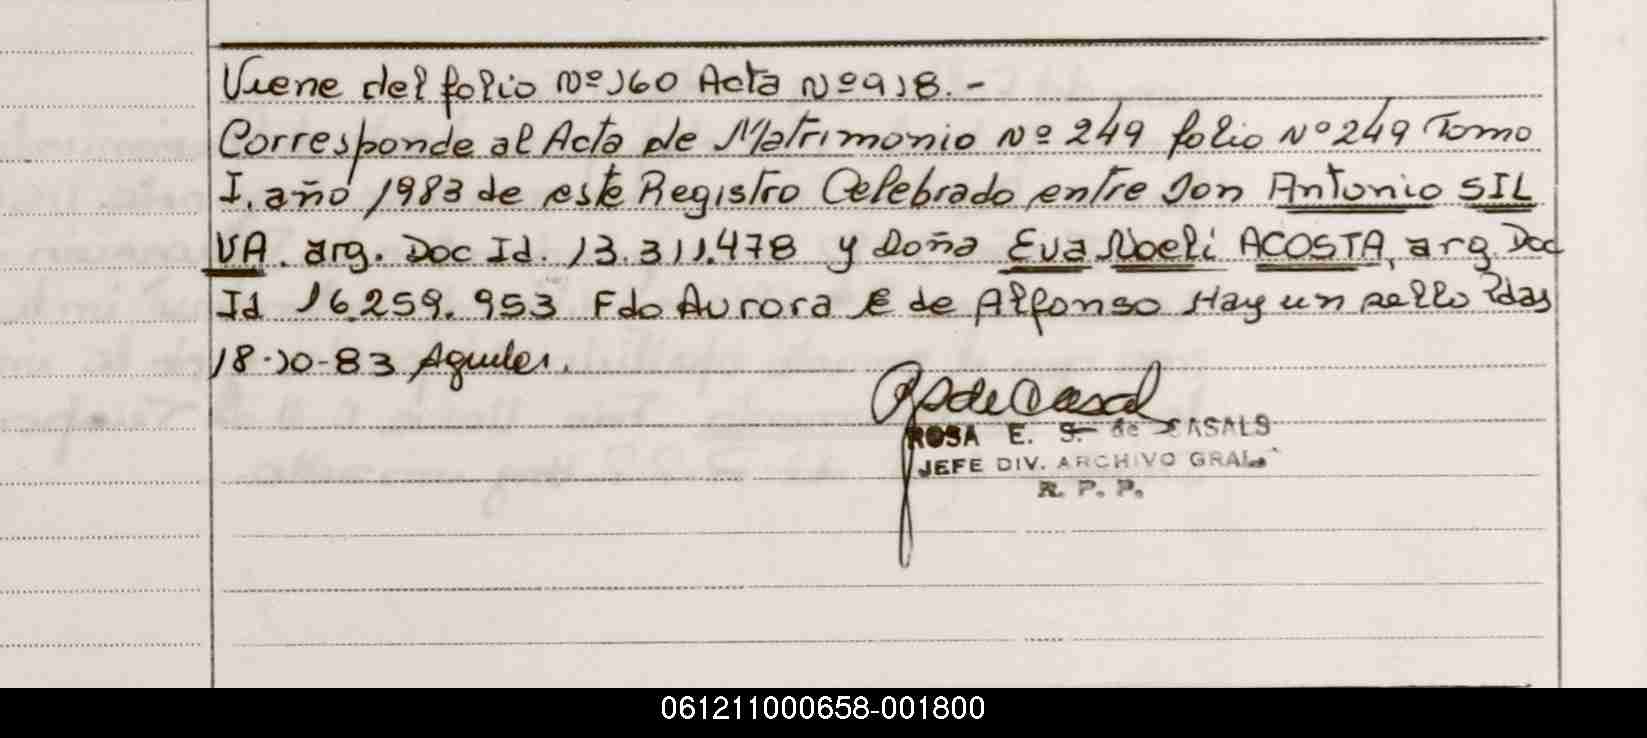 Viene del folio Nº 160 Acta Nº 918.-
Corresponde al Acta de Matrimonio Nº 249 folio Nº 249 Tomo
I. año 1983 de este Registro Celebrado entre Don Antonio SIL
VA. arg. Doc Id. 13.311.478 y Doña Eva Noeli ACOSTA, arg. Doc
Id 16.259.953 Fdo Aurora E de Alfonso Hay un sello Pdas
18-10-83 Aguiler.
ROSA E. S. de CASALS
JEFE DIV. ARCHIVO GRAL.
R. P. P.
061211000658-001800